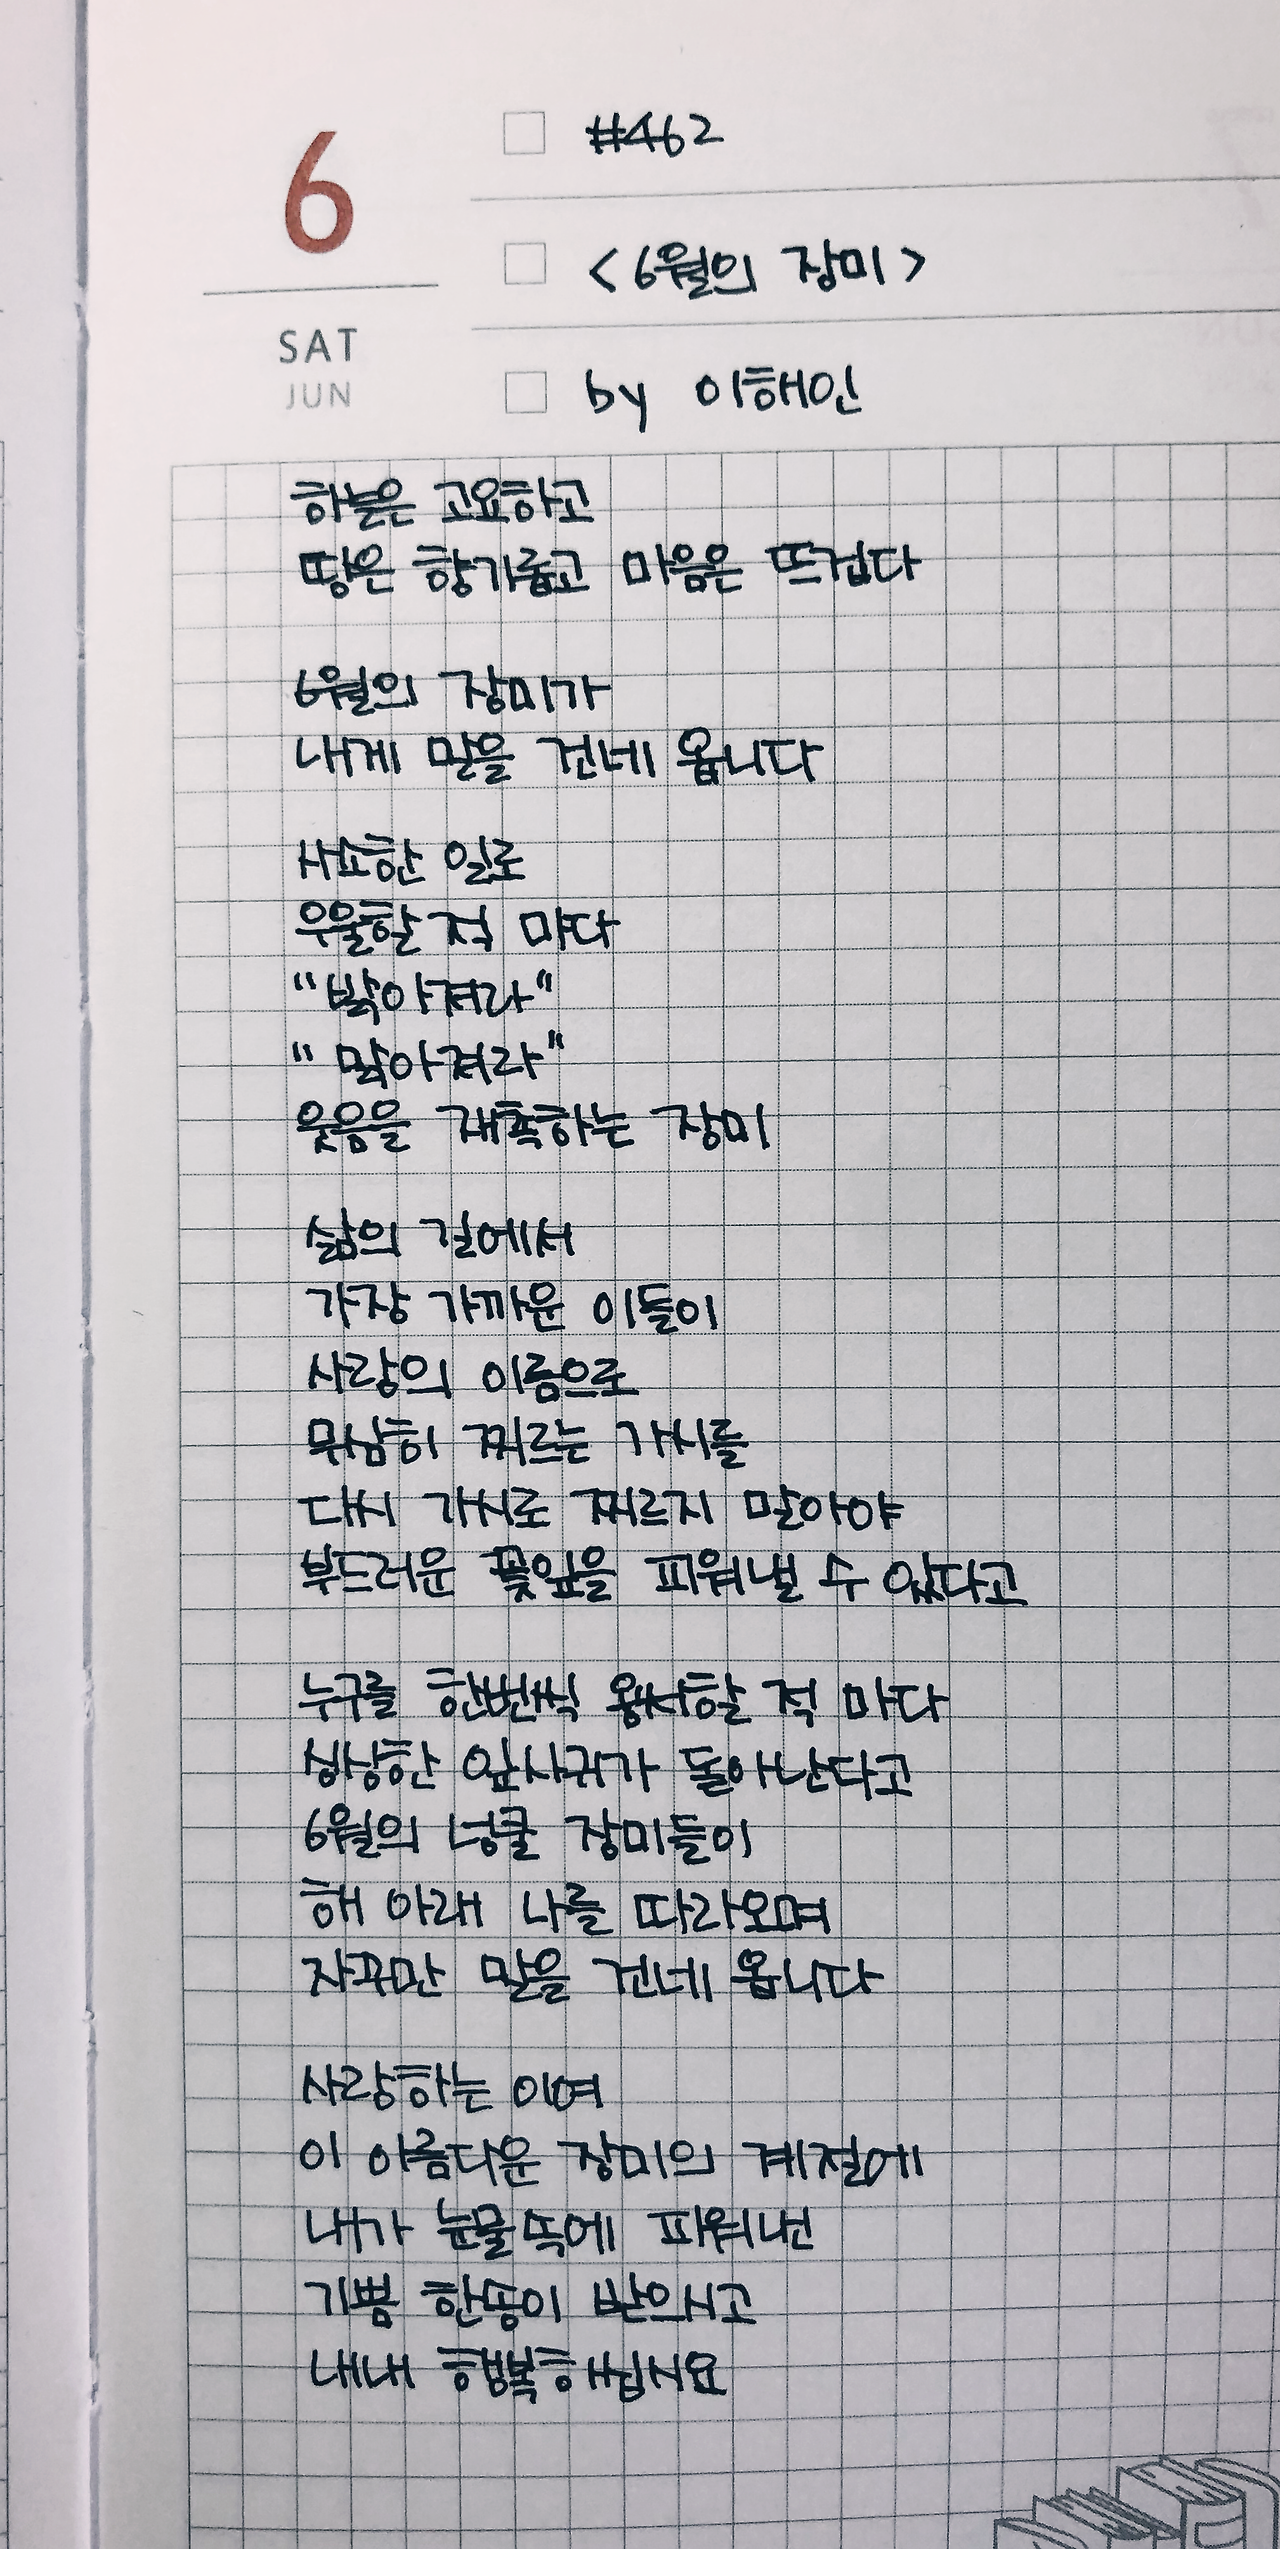 6
SAT
JUN
#462
<6월의 장미>
by 이해인
하늘은 고요하고
땅은 향기롭고 마음은 뜨겁다
6월의 장미가
내게 말을 건네 옵니다
사소한 일로
우울할 적 마다
"밝아져라"
"맑아져라"
웃음을 재촉하는 장미
삶의 길에서
가장 가까운 이들이
사랑의 이름으로
무심히 찌르는 가시를
다시 가시로 찌르지 말아야
부드러운 꽃잎을 피워낼 수 있다고
누구를 한번씩 용서할 적 마다
싱싱한 잎사귀가 돋아난다고
6월의 넝쿨 장미들이
해 아래 나를 따라오며
자꾸만 말을 건네 옵니다
사랑하는 이여
이 아름다운 장미의 계절에
내가 눈물 속에 피워낸
기쁨 한송이 받으시고
내내 행복하십시요